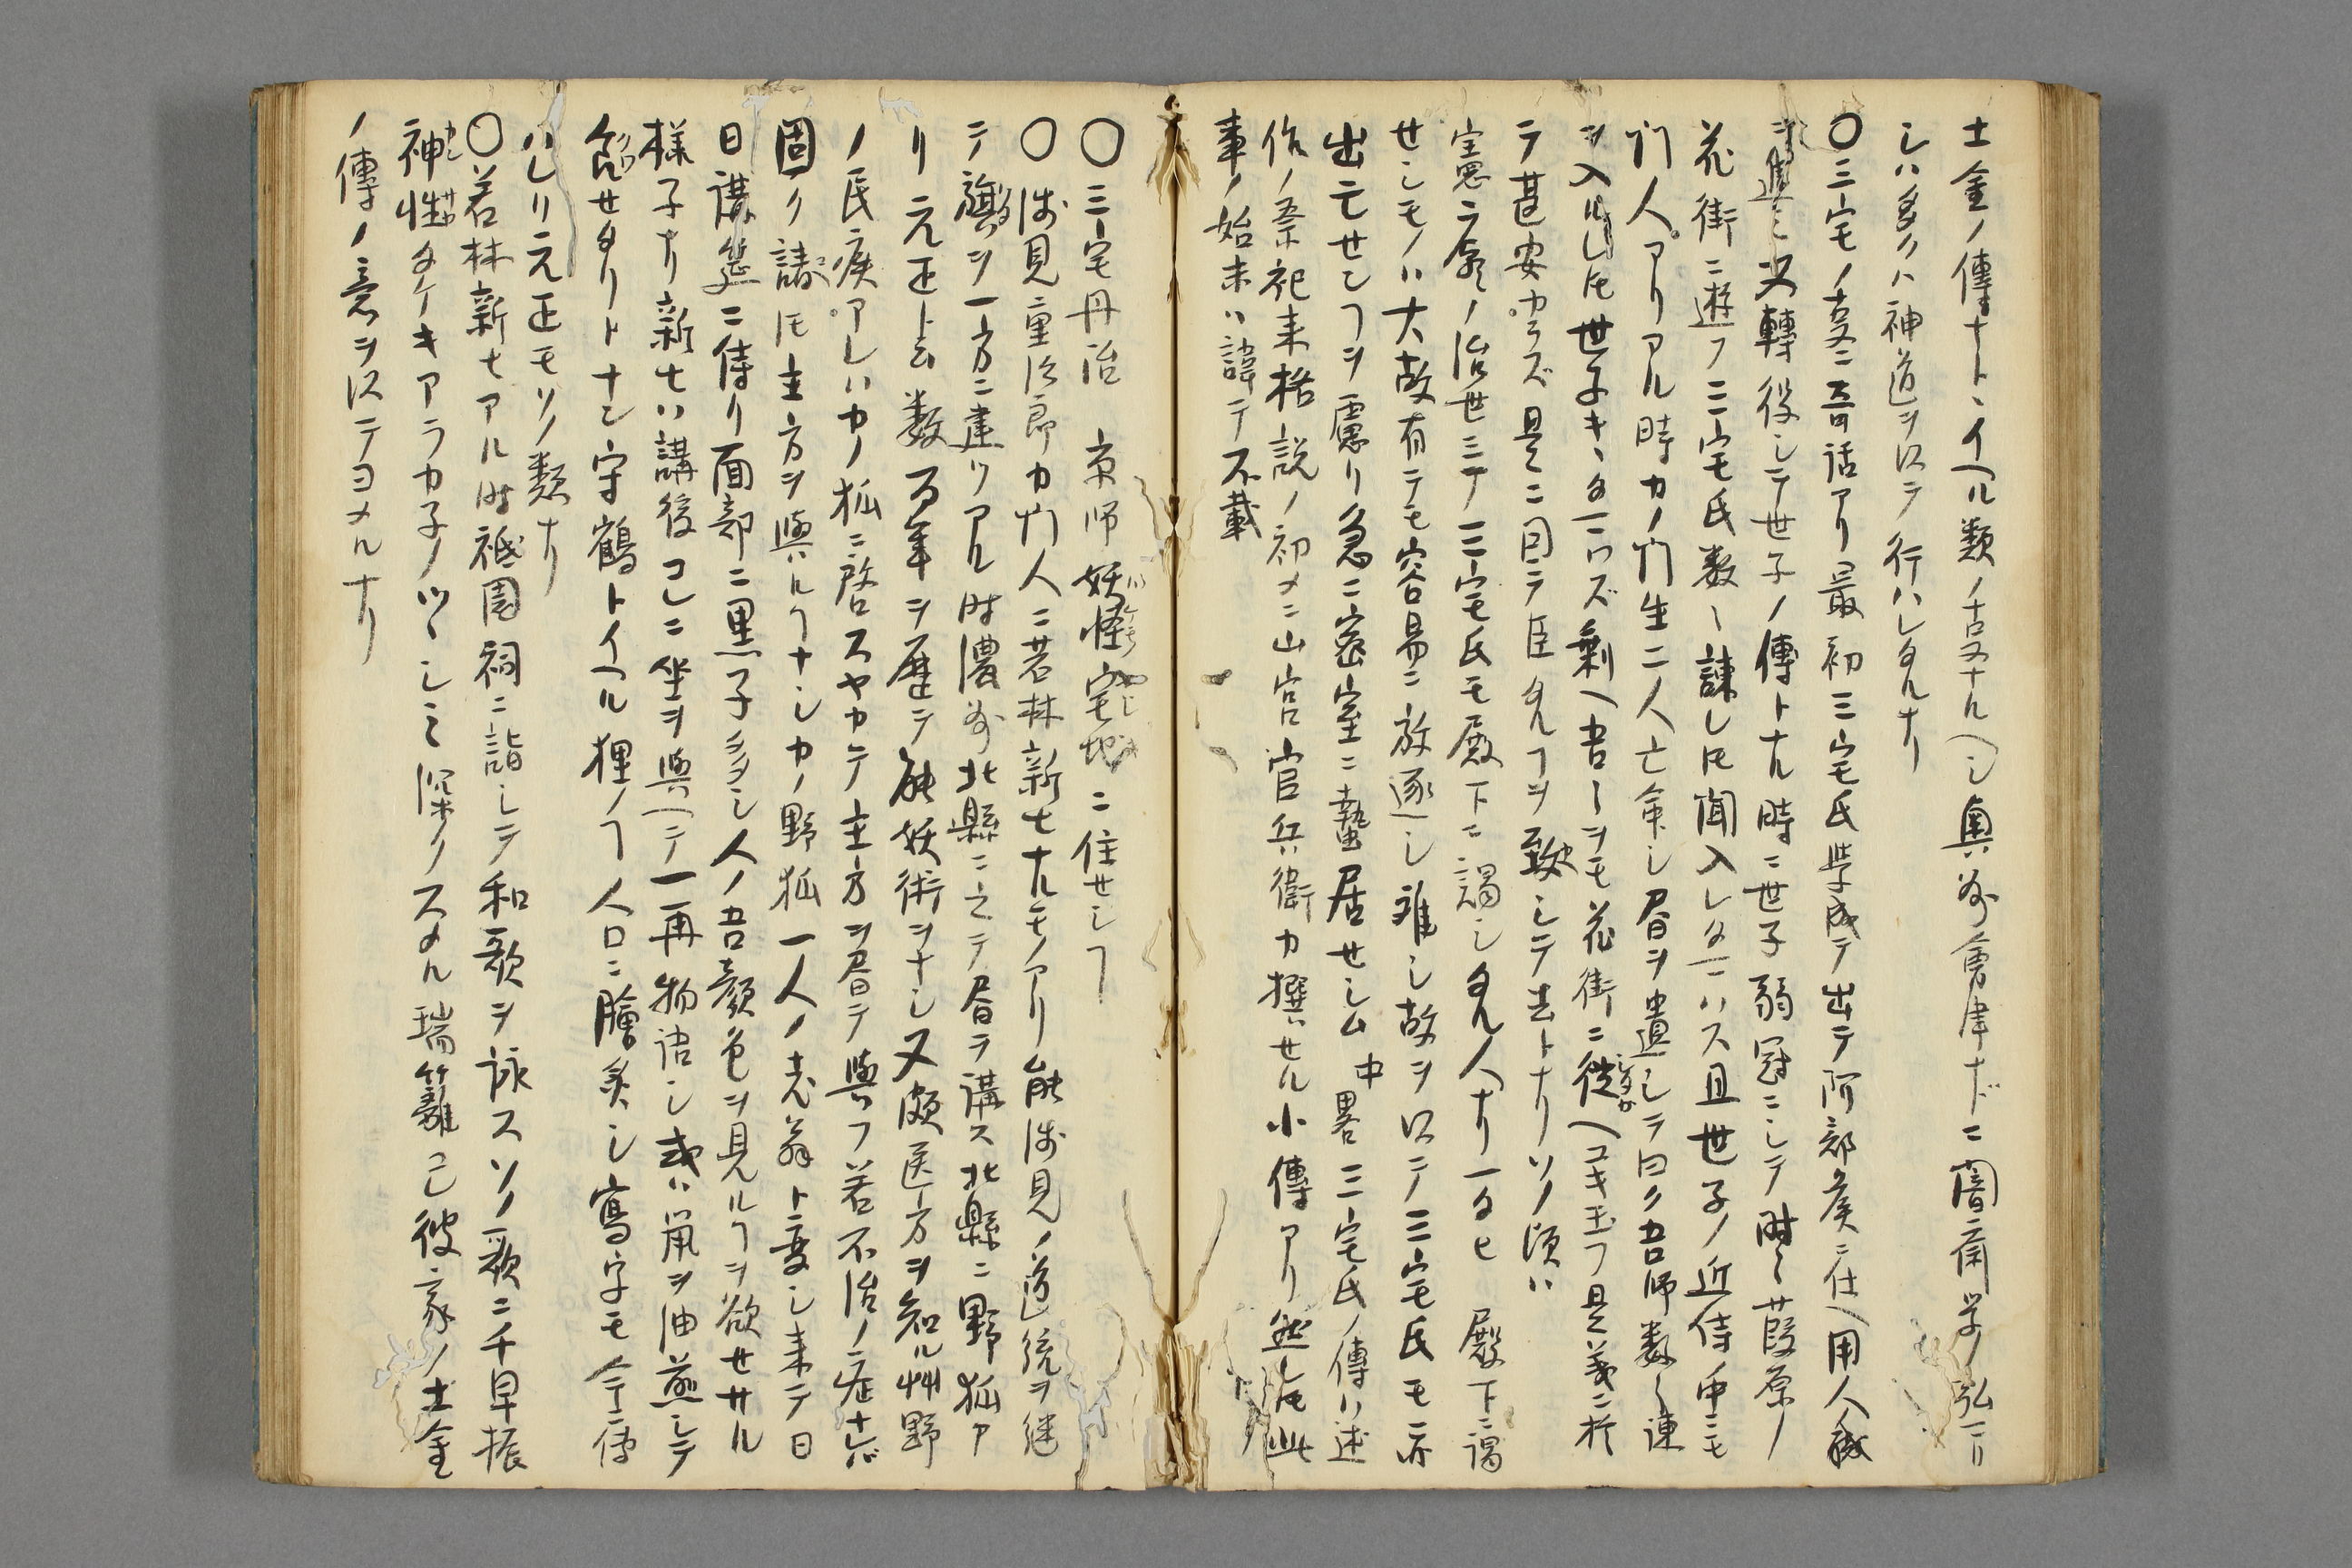 土金ノ傳ナト丶イヘル類ノ古叓ナルヘシ奥州會津ナドニ闇齋学ノ弘マリ
シハ多クハ神道ヲ以テ行ハレタルナリ
〇三宅ノ古叓ニ奇話アリ最初三宅氏学成テ出テ阿部矦ニ仕ヘ用人職
ヲ進ミ又轉役シテ世子ノ傳トナル時ニ世子弱冠ニシテ時〻葭原ノ
花街ニ遊フ三宅氏数〻諌レ𪜈聞入レタマハス且世子ノ近侍ノ中ニモ
門人アリアル時カノ門生二人亡命シ書ヲ遺シテ曰ク吾師数〻諌
ヲ入ルレ𪜈世子キヽタマハズ剰ヘ吾〻ヲモ花街ニ從ヘユキ玉フ是義ニ於
テ甚安カラズ是ニ因テ臣タルヿヲ致シテ去トナリソノ頃ハ
憲廟ノ治世ニテ三宅氏モ殿下ニ謁シタル人ナリ一タヒ 殿下ニ謁
セシモノハ大故有テモ容易ニ放逐シ難シ故ヲ以テ三宅氏モ亦
出亡センヿヲ慮リ急ニ密室ニ蟄居セシム 中畧 三宅氏ノ傳ハ述
作ノ祭祀来格説ノ初メニ山宮官兵衛カ撰セル小傳アリ然レ𪜈此
事ノ始末ハ諱テ不載
〇三宅丹治 京师妖怪宅地ニ住セシヿ
〇浅見重次郎カ門人ニ若林新七ナルモノアリ能浅見ノ道統ヲ継
テ旗ヲ一方ニ建リアル时濃州北縣ニ之テ書ヲ講ス北縣ニ野狐ア
リ元正ト云数百年ヲ歴テ能妖術ヲナシ又頗医方ヲ知ル艸野
ノ民疾アレハカノ狐ニ啓スヤカテ主方ヲ書テ與フ若不治ノ症ナレバ
固ク請𪜈主方ヲ與ルヿナシカノ野狐一人ノ老翁ト変シ来テ日
日講筵ニ侍リ面部ニ黒子多シ人ノ吾顔色ヲ見ルヿヲ欲セサル
様子ナリ新七ハ講後コレニ坐ヲ與ヘテ一再物语シ或ハ鼠ヲ油煎シテ
饗セタリトナン守鶴トイヘル狸ノヿ人口ニ膾炙シ寫字モ今ニ傳
ハレリ元正モソノ類ナリ
〇若林新七アル时祗園祠ニ詣シテ和歌ヲ詠スソノ歌ニ千早振
神性タケキアラカ子ノツヽシミ深クスメル瑞籬コレ彼家ノ土金
ノ傳ノ意ヲ以テヨメルナリ